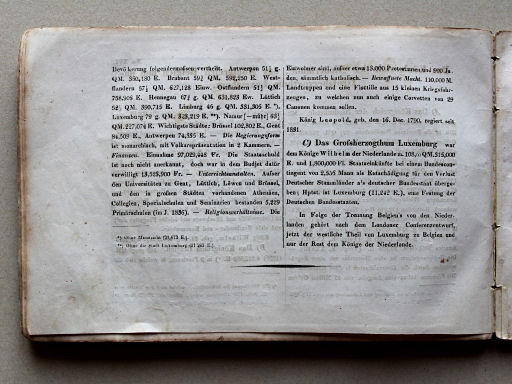 Bevölkerung folgendermaßen vertheilt. Antwerpen 51¼ g.
QM. 350,180 E. Brabant 59¾ QM. 592,250 E. West-
flandern 57¾ QM. 627,128 Einw. Ostflandern 51¾
QM. 758,305 E. Hennegau 67¾ g. QM. 631,828 Ew. Lüttich
52¾ QM. 390,715 E. Limburg 46 g. QM. 331,305 E. *).
Luxemburg 79 g. QM. 323,219 E. **). Namur
QM. 227,074 E. Wichtigste Städte: Brüssel 102,802 E., Gent
84,509 E., Antwerpen 74,335 E. — Die Regierungsform
ist monarchisch, mit Volksrepräsentation in 2 Kammern. —
Finanzen. Einnahme 97,029,448 Fr. Die Staatsschuld
ist noch nicht anerkannt, doch war in dem Budjet dafür
verwilligt 13,525,900 Fr. — Unterrichtsanstalten. Ausser
den Universitäten zu Gent, Lüttich, Löwen und Brüssel,
und den in großen Städten vorhandenen Athenäen,
Collegien, Specialschulen und Seminarien bestanden 5,229
Primärschulen (in J. 1836). — Religionsverhältnisse. Die
*) Ohne Maestricht (21,873 E.).
**) Ohne die Stadt Luxemburg (11,242 E.)
Einwohner sind, außer etwa 13,000 Protestanten und 900 Ju-
den, sämmtlich katholisch. — Bewaffnete Macht. 110,000 M.
Landtruppen und eine Flottille aus 15 kleinen Kriegsfahr-
zeugen, zu welchen nun auch einige Corvetten von 29
Canonen kommen sollen.
König Leopold, geb. den 16. Dec. 1790, regiert seit
1831.
C) Das Großherzogthum Luxemburg war
dem Könige Wilhelm der Niederlande m. 108 QM. 315,000
E. und 1,800,000 Fl. Staatseinkünfte bei einem Bundescon-
tingent von 2,556 Mann als Entschädigung für den Verlust
Deutscher Stammländer als deutscher Bundesstaat überge-
ben; Hptst. ist Luxemburg (11,242 E.), eine Festung des
Deutschen Bundesstaaten.
In Folge der Trennung Belgien's von den Nieder-
landen gehört nach dem Londoner Conferenzentwurf,
jetzt der westliche Theil von Luxemburg zu Belgien und
nur der Rest dem Könige der Niederlande.